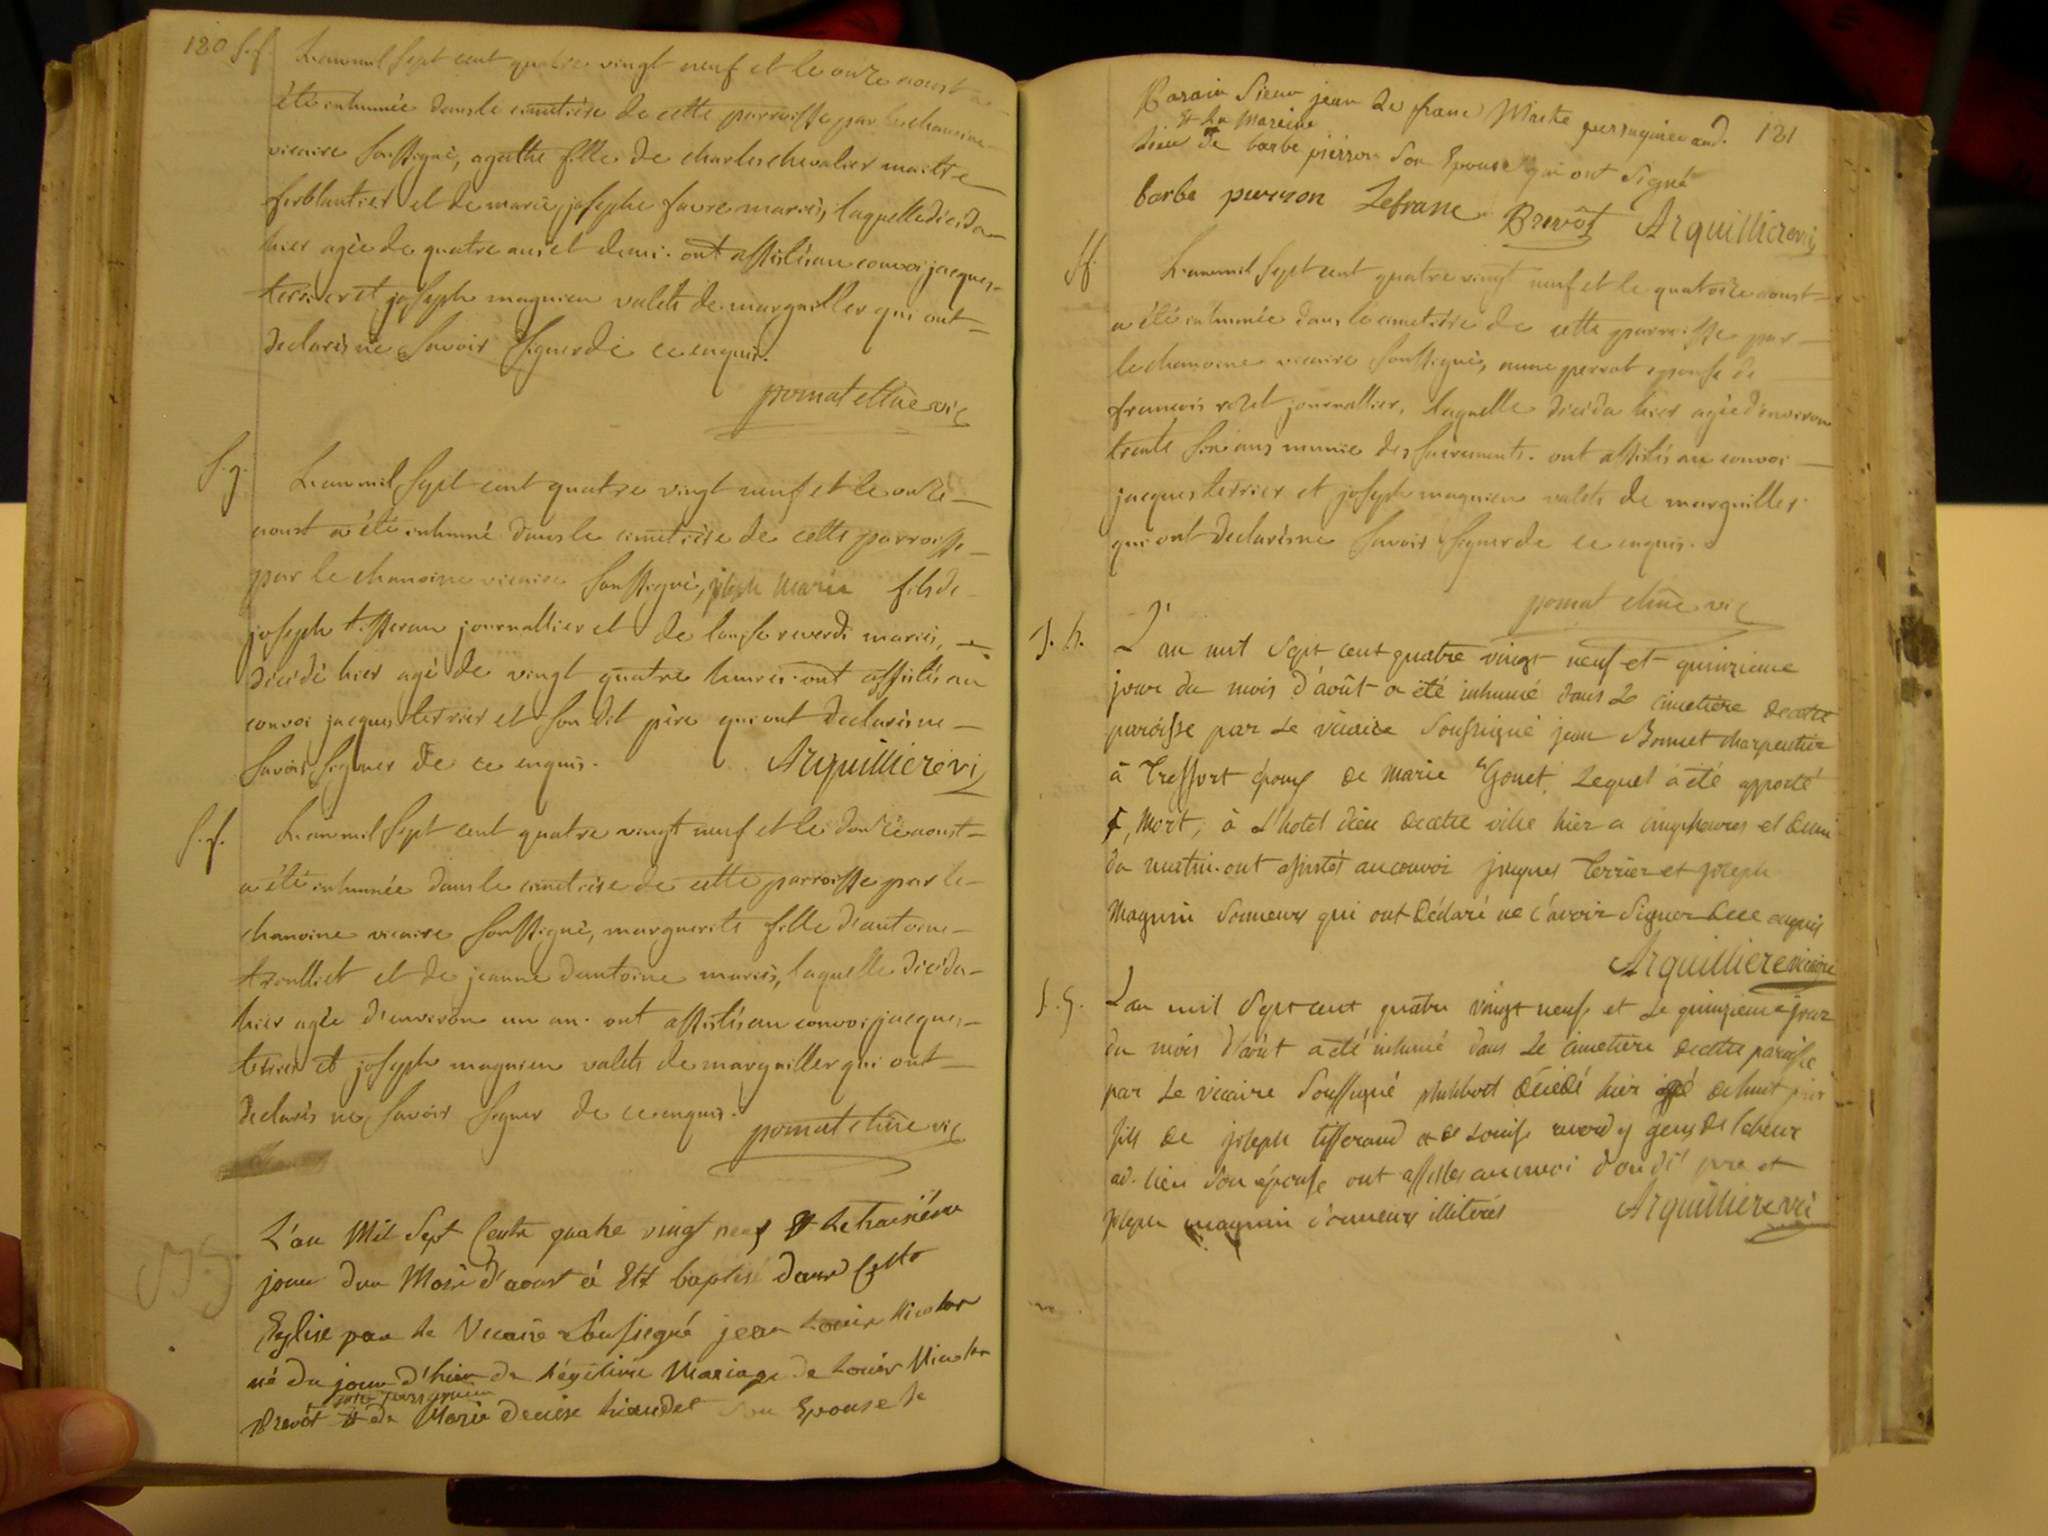 120 S.f. L'an mil sept cent quatre vingt neuf et le onze aoust a
été inhumée dans le cimetière de cette parroisse par le chanoine
vicaire soussigné, agathe fille de charles chevalier maitre
ferblantier et de marie josephe favre mariés, laquelle décéda
hier agée de quatre ans et demi. ont assistés au convoi jacques
terrier et joseph magnien valets de marguiller qui ont
declarés ne savoir signer de ce enquis.
pomat chne vic
S.g. L'an mil sept cent quatre vingt neuf et le onze
aoust a été inhumé dans le cimetière de cette parroisse
par le chanoine vicaire soussigné, joseph Marie fils de
joseph tisseran journallier et de louise reverdi mariés,
décédé hier agé de vingt quatre heures. ont assistés au
convoi jacques terrier et son dit père qui ont declarés ne
savoir signer de ce enquis. Arquilliere vi
S.f. L'an mil sept cent quatre vingt neuf et le douze aoust
a été inhumée dans le cimetière de cette parroisse par le
chanoine vicaire soussigné, marguerite fille d'antoine
trolliet et de jeanne dantoine mariés, laquelle décéda
hier agée d'environ un an. ont assistés au convoi jacques
terrier et joseph magnien valets de marguiller qui ont
declarés ne savoir signer de ce enquis.
pomat chne vic
L'an Mil Sept Cents quatre vingt neuf & Le Traisiéme
jour du Mois d'aoust á Etté baptisé dans Cette
Eglise par Le Vicaire Soussigné jean Louis Nicolas
né du jour d'hier du Légitime Mariage de Louis Nicolas
Prevôt & de Marie denise Son Epouse le
Parain Sieur jean Le franc Maitre perruquier aud. 121
& La Mareine
Lieu de barbe pierron Son Epouse qui ont Signé
barbe pierron Lefranc Prevôt Arquilliere vi
Sf. L'an mil sept cent quatre vingt neuf et le quatorze aoust
a été inhumée dans le cimetière de cette parroisse par
le chanoine vicaire soussigné, anne perrat epouse de
francois rozet journallier, laquelle décéda hier agée d'environ
trente six ans munie des sacrements. ont assistés au convoi
jacques terrier et joseph magnien valets de marguiller
qui ont declarés ne savoir signer de ce enquis.
pomat chne vic
S. h. L'an mil sept cent quatre vingt neuf et quinzieme
jour du mois d'août a été inhumé dans Le cimetière de cette
paroisse par Le vicaire Soussigné jean Bonnet charpentier
à Treffort époux de Marie Gonet, Lequel a été apporté
, Mort, à L'hotel dieu de cette ville hier a cinq heures et demi
du matin. ont assistés au convoi jacques Terrier et joseph
Magnin Sonneurs qui ont déclaré ne sçavoir Signer de ce enquis
Arquilliere vicaire
S. G. L'an mil Sept cent quatre vingt neuf et Le quinzieme jour
du mois d'août a été inhumé dans Le cimetiere de cette paroisse
par Le vicaire Soussigné décédé hier agé de huit jours
fils de joseph tisserand et de Louise reverdy gens de labeur
ad. lieu Son épouse ont assistés au convoi Son dit père et
joseph magnin Sonneurs illiterés Arquilliere vic